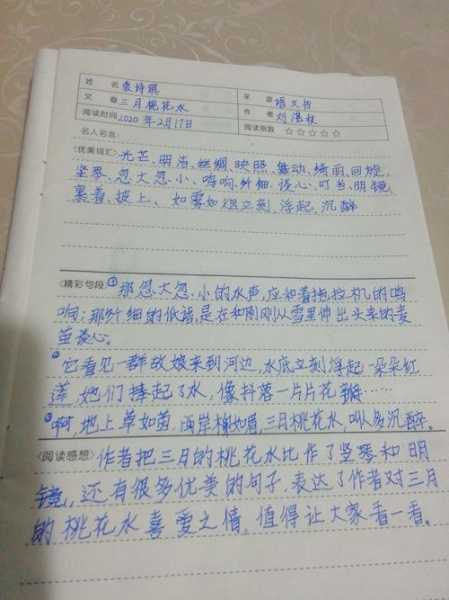 姓 名 袁诗琪
文 章 三月桃花水
作 者 刘湛秋
阅读时间 2020年2月17日
阅读指数 ☆☆☆☆☆
名人名言:
〈优美词汇〉光芒、明洁、丝绸、映照、舞动、绮丽、回旋、
竖琴、忽大忽小、鸣响、纤细、谈心、叮当、明镜、
裹着、披上、如雾如烟立刻、浮起、沉醉
〈精彩句段〉①那忽大忽小的水声,应和着拖拉机的鸣
响;那纤细的低语,是在和刚刚从雪里伸出头来的麦
苗谈心。
②它看见一群姑娘来到河边,水底立刻浮起一朵朵红
莲,她们捧起了水,像抖落一片片花瓣……
③啊,地上草如茵,两岸柳如眉,三月桃花水,叫人多沉醉。
〈阅读感想〉作者把三月的桃花水比作了竖琴和明
镜,还有很多优美的句子,表达了作者对三月
的桃花水喜爱之情,值得让大家看一看。